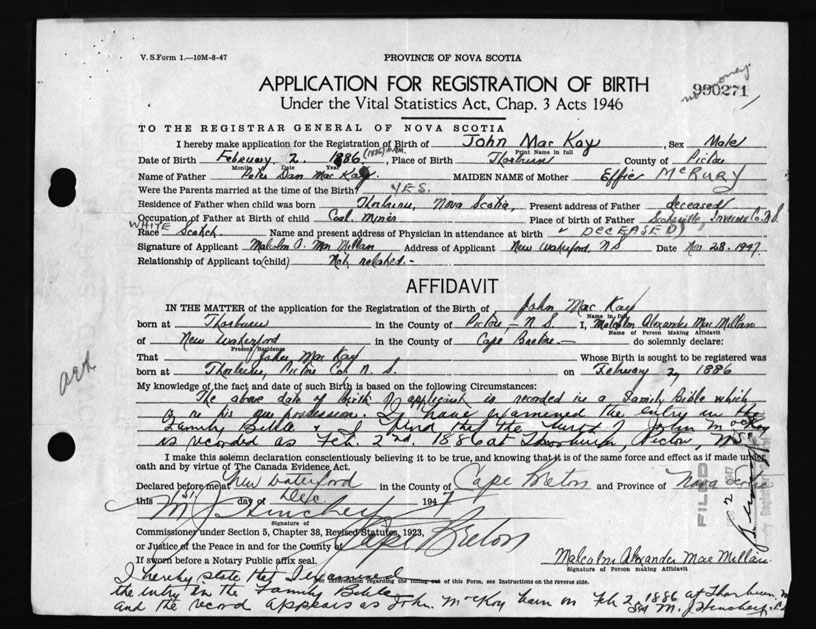 V. S. Form 1.—10M-8-47
PROVINCE OF NOVA SCOTIA
no money
990271
APPLICATION FOR REGISTRATION OF BIRTH
Under the Vital Statistics Act, Chap. 3 Acts 1946
TO THE REGISTRAR GENERAL OF NOVA SCOTIA
I hereby make application for the Registration of Birth of John Mac Kay, Sex Male
Print Name in full
Date of Birth February 2. 1886 (1886), Place of Birth Thorburn County of Pictou
Month Date Year
Name of Father Peter Dan Mac Kay. MAIDEN NAME of Mother Effie McRury
Were the Parents married at the time of the Birth? YES.
Residence of Father when child was born Thorburn, Nova Scotia, Present address of Father deceased
Occupation of Father at Birth of child Coal miner Place of birth of Father Inverness Co. N.S.
WHITE
Race Scotch Name and present address of Physician in attendance at birth " DECEASED"
Signature of Applicant Malcolm A. Mac Millan Address of Applicant New Waterford, N.S Date Nov 28. 1947.
Relationship of Applicant to (child) Not related.-
AFFIDAVIT
IN THE MATTER of the application for the Registration of the Birth of John Mac Kay
Name in full
born at Thorburn in the County of Pictou - N. S. I, Malcolm Alexander Mac Millan
Name of Person Making Affidavit
of New Waterford in the County of Cape Breton.- do solemnly declare:
Present Residence
That John Mac Kay Whose Birth is sought to be registered was
born at Thorburn, Pictou Co. N. S. on February 2, 1886
My knowledge of the fact and date of such Birth is based on the following Circumstances:
The above date of birth of applicant is recorded in a Family Bible which
is in his own possession. I have examined the entry in the
Family Bible & I find that the birth of John McKay
is recorded as Feb. 2nd. 1886 at Thorburn, Pictou, N.S.
I make this solemn declaration conscientiously believing it to be true, and knowing that it is of the same force and effect as if made under
oath and by virtue of The Canada Evidence Act.
Declared before me at New Waterford in the County of Cape Breton and Province of Nova Scotia
this 1st day of Dec. 1947
M J Hinchey
Signature of
Commissioner under Section 5, Chapter 38, Revised Statutes, 1923,
or Justice of the Peace in and for the County of Cape Breton
If sworn before a Notary Public affix seal.
Malcolm Alexander Mac Millan
Signature of Person making Affidavit
For information regarding the filling out of this Form, see Instructions on the reverse side.
I hereby state that I examined
the entry in the Family Bible
and the record appears as John McKay born on Feb 2, 1886 at Thorburn
Sgd M. J Hinchey
FILED